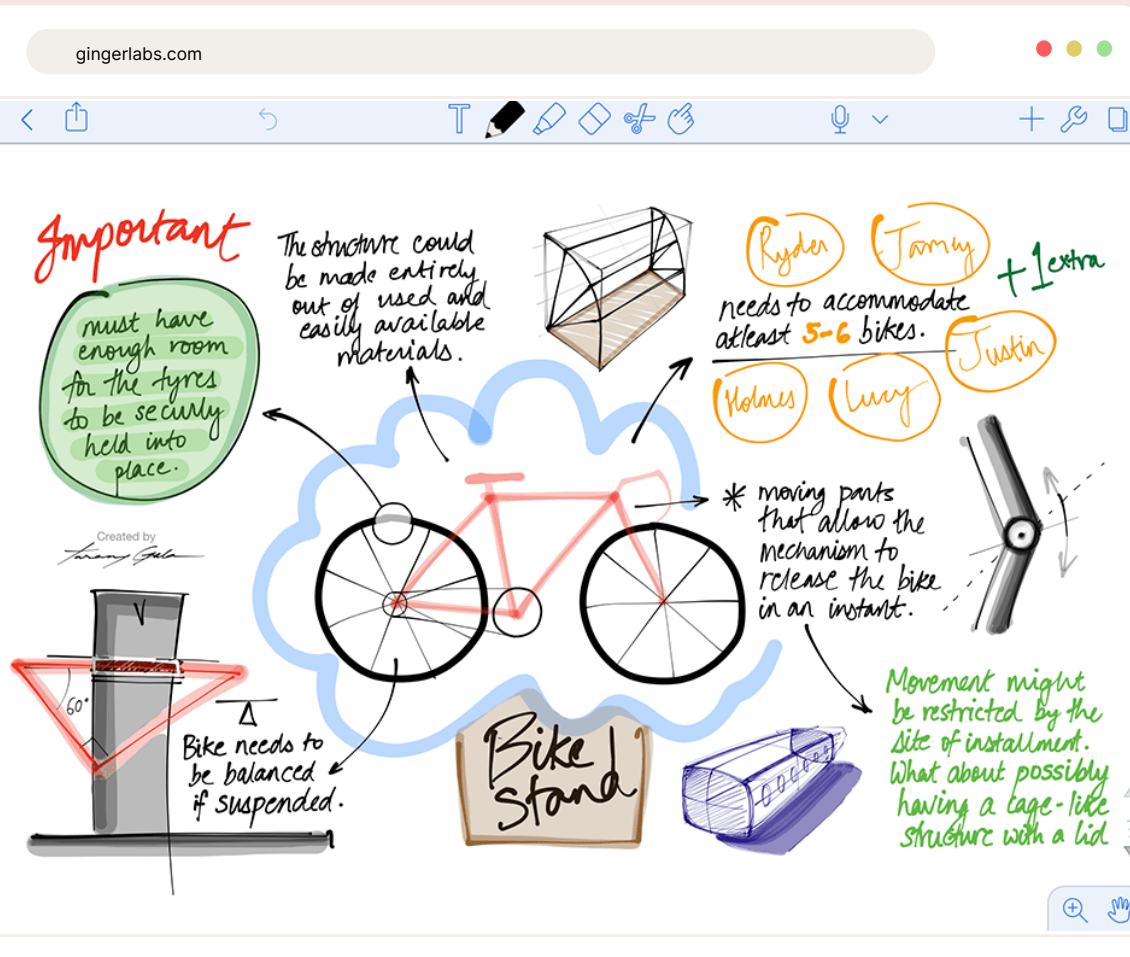 gingerlabs.com
T
Important
must have
enough room
for the tyres
to be securly
held into
place.
The structure could
be made entirely
out of used and
easily available
materials.
Ryder
+1 extra
needs to accommodate
atleast 5-6 bikes.
Justin
Holmes
Lucy
* moving parts
that allow the
mechanism to
release the bike
in an instant.
Created by
60°
Bike needs to
be balanced
if suspended.
Bike
stand
Movement might
be restricted by the
site of installment.
What about possibly
having a cage-like
structure with a lid